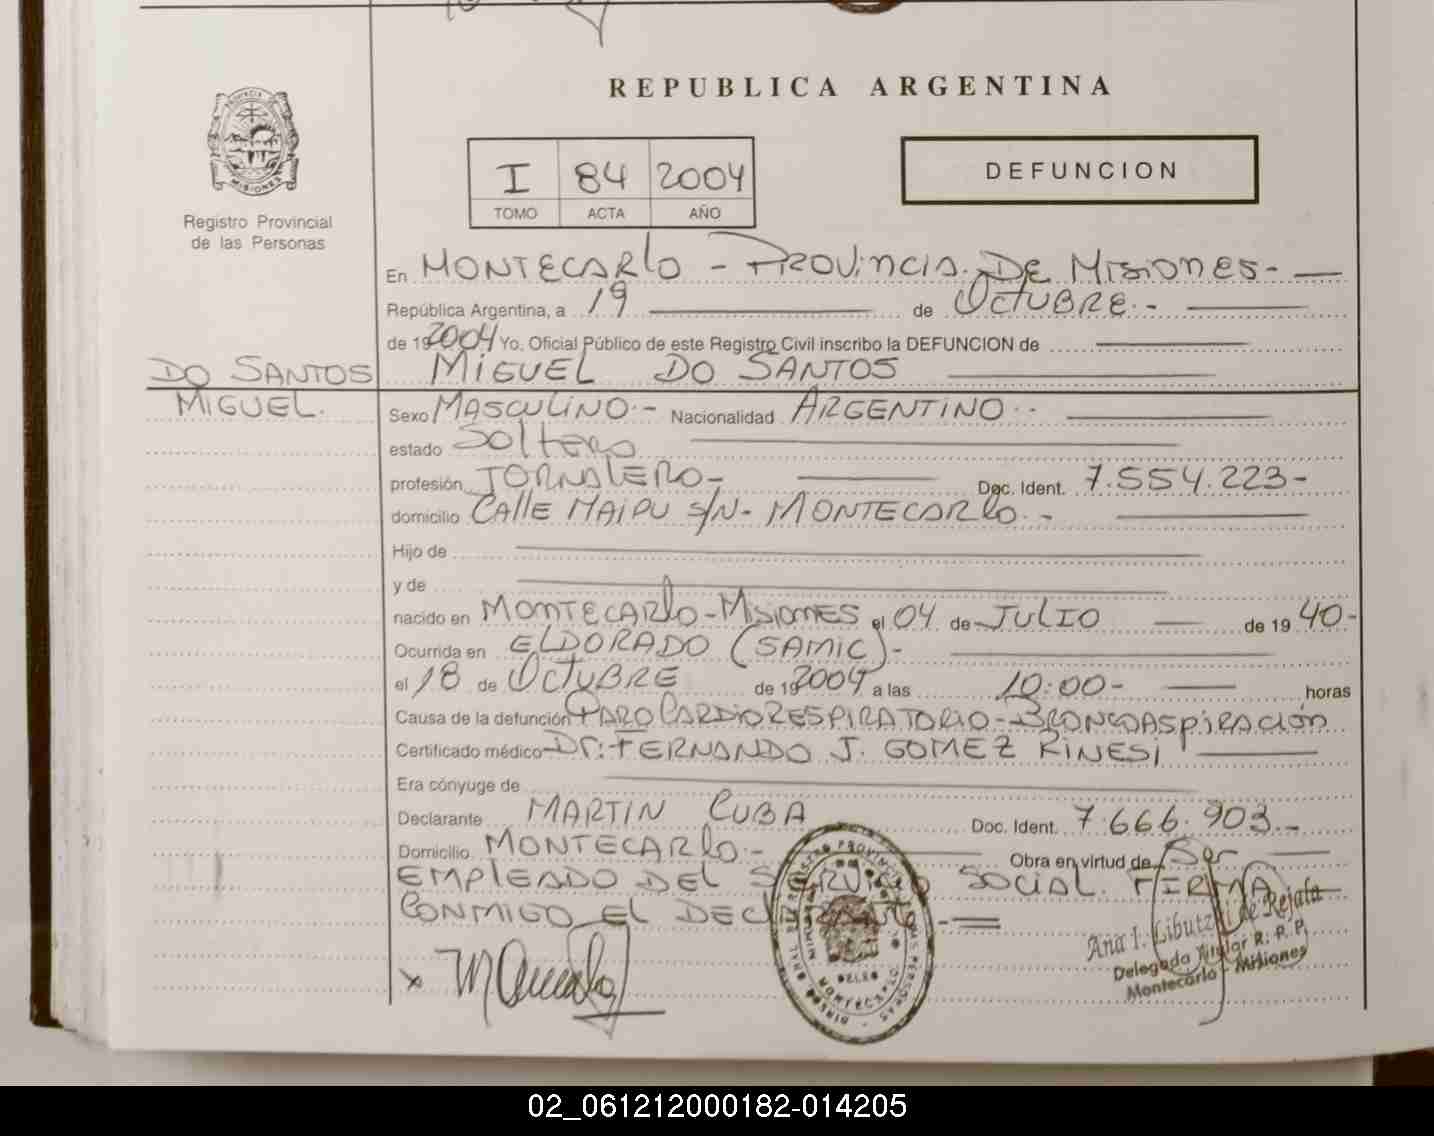 REPUBLICA ARGENTINA
PROVINCIA DE
MISIONES
Registro Provincial
de las Personas
I 84 2004
TOMO ACTA AÑO
DEFUNCION
En MONTECARLO - PROVINCIA DE MISIONES-
República Argentina, a 19 de OCTUBRE.-
de 192004 Yo, Oficial Público de este Registro Civil inscribo la DEFUNCION de
DO SANTOS MIGUEL DO SANTOS
MIGUEL. Sexo MASCULINO.- Nacionalidad ARGENTINO.-
estado Soltero
profesión JORNALERO- Doc. Ident. 7.554.223-
domicilio CAllE MAIPU S/N- MONTECARLO.-
Hijo de
y de
nacido en MONTECARLO-MISIONES el 04 de JULIO de 19 40-
Ocurrida en ELDORADO (SAMIC)-
el 18 de OCTUBRE de 192004 a las 10:00- horas
Causa de la defunción PARO CARDIORESPIRATORIO-BRONCOASPIRACIÓN
Certificado médico Dr: FERNANDO J. GOMEZ RINESI
Era cónyuge de
Declarante MARTIN CUBA Doc. Ident. 7.666.903.-
Domicilio MONTECARLO- Obra en virtud de Ser
EMPLEADO DEL SERVICIO SOCIAL. FIRMA
CONMIGO EL DECLARANTE-
Ana I. Libutzki de Rejala
Delegada Titular R. P. P.
Montecarlo - Misiones
02_061212000182-014205